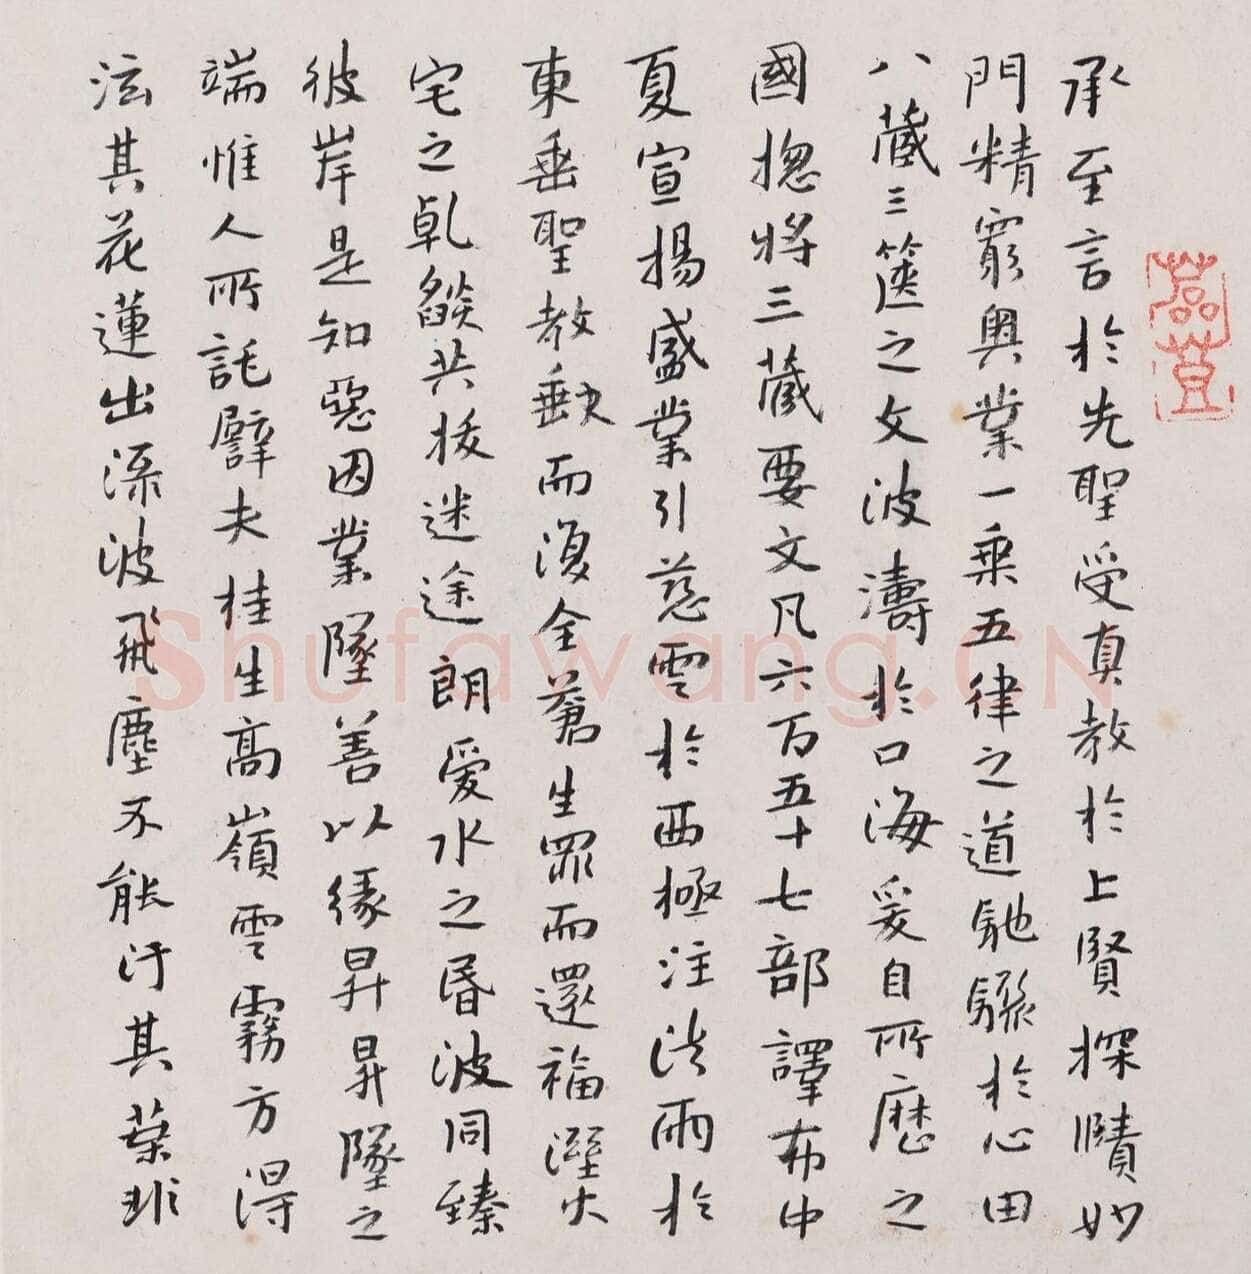 承至言於先聖受真教於上賢探賾妙
門精窮奧業一乘五律之道馳驟於心田
八藏三篋之文波濤於口海爰自所歷之
國揔將三藏要文凡六百五十七部譯布中
夏宣揚盛業引慈雲於西極注法雨於
東垂聖教缺而復全蒼生罪而還福溼火
宅之乹燄共拔迷途朗愛水之昏波同臻
彼岸是知惡因業墜善以緣昇昇墜之
端惟人所託譬夫桂生高嶺雲霧方得
泫其花蓮出淥波飛塵不能汙其葉非
Shufawang.CN